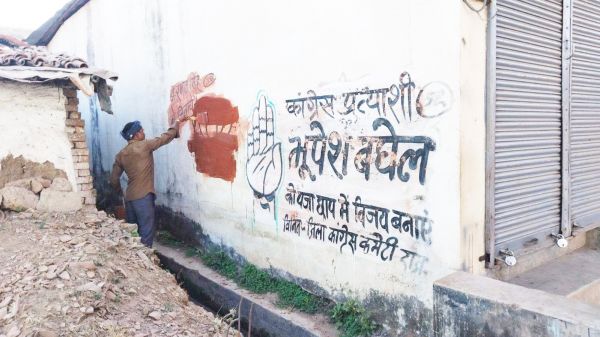 कांग्रेस प्रत्याशी
भूपेश बघेल
को पंजा छाप में विजय बनाएं
जिला कांग्रेस कमेटी